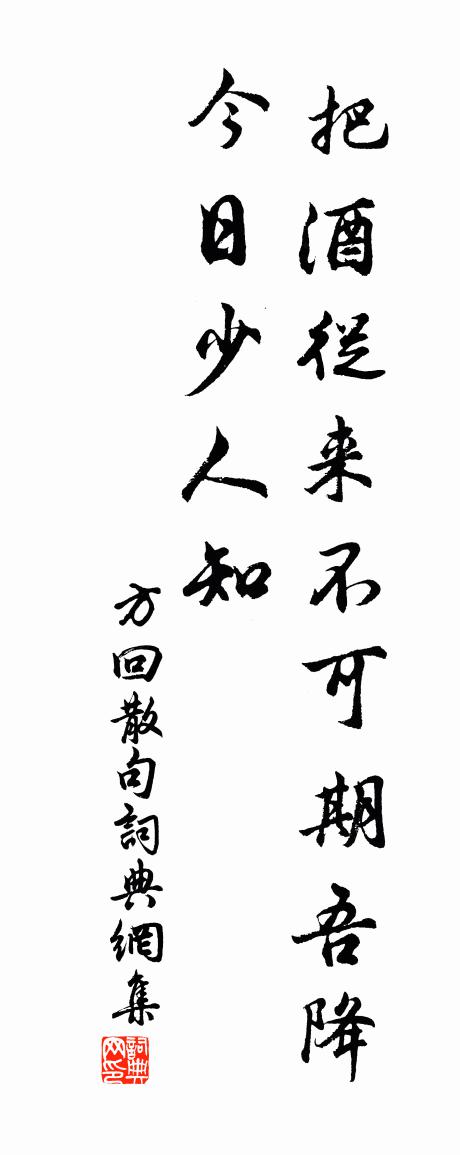 把酒從来不可期吾降
今日少人知
方回散句詞典網集
詞典网印